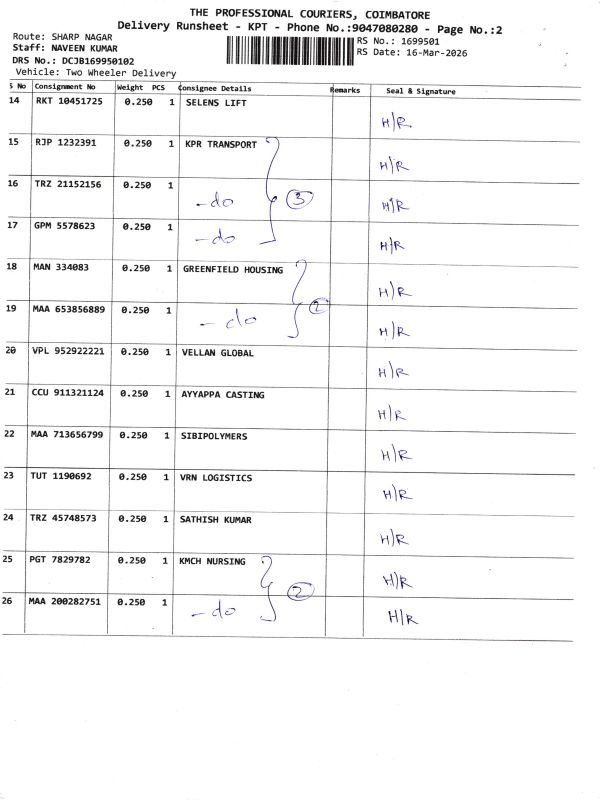 THE PROFESSIONAL COURIERS, COIMBATORE
Delivery Runsheet - KPT - Phone No.:9047080280 - Page No.:2
Route: SHARP NAGAR
RS No.: 1699501
Staff: NAVEEN KUMAR
RS Date: 16-Mar-2026
DRS No.: DCJB169950102
Vehicle: Two Wheeler Delivery
S No Consignment No Weight PCS Consignee Details Remarks Seal & Signature
14 RKT 10451725 0.250 1 SELENS LIFT H/R
15 RJP 1232391 0.250 1 KPR TRANSPORT H/R
16 TRZ 21152156 0.250 1 -do 3 H/R
17 GPM 5578623 0.250 1 -do H/R
18 MAN 334083 0.250 1 GREENFIELD HOUSING H/R
19 MAA 653856889 0.250 1 -do 2 H/R
20 VPL 952922221 0.250 1 VELLAN GLOBAL H/R
21 CCU 911321124 0.250 1 AYYAPPA CASTING H/R
22 MAA 713656799 0.250 1 SIBIPOLYMERS H/R
23 TUT 1190692 0.250 1 VRN LOGISTICS H/R
24 TRZ 45748573 0.250 1 SATHISH KUMAR H/R
25 PGT 7829782 0.250 1 KMCH NURSING 2 H/R
26 MAA 200282751 0.250 1 -do H/R